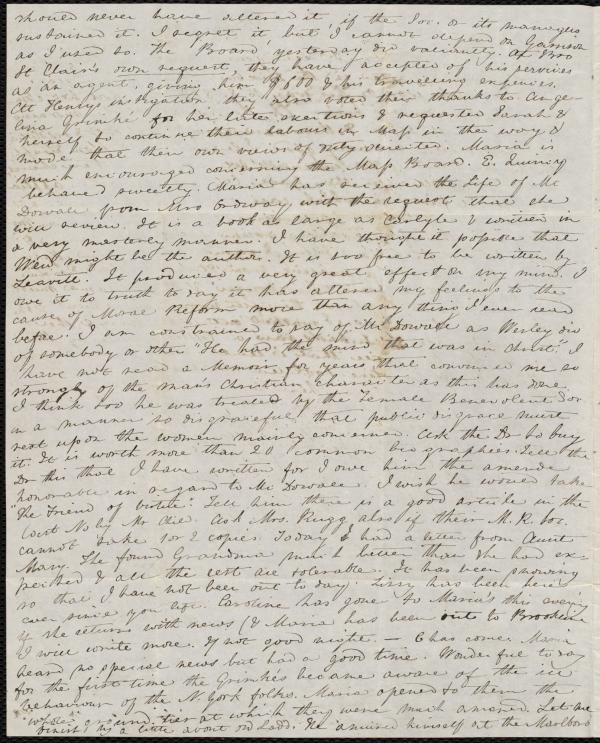 should never have altered it, if the Soc. or its managers
sustained it. I regret it, but I cannot depend on Garrison
as I used to. The Board yesterday did valiantly. At Bro
St Clair's own request, they have accepted of his services
as an agent, giving him $600 & his travelling expenses.
At Henry's instigation they also voted their thanks to Ange-
lina Grimké for her late exertions & requested Sarah &
herself to continue their labours in Mass in the way &
mode that their own views of duty dictated. Maria is
much encouraged concerning the Mass Board. E. Quincy
behaved sweetly. Maria has received the Life of Mc
Dowall from Mrs Ordway with the request that she
will review. It is a book as large as Carlyle & written in
a very masterly manner. I have thought it possible that
Weld might be the author. It is too free to be written by
Leavitt. It produced a very great effect on my mind. I
owe it to truth to say it has altered my feelings to the
cause of Moral Reform more than any thing I ever read
before. I am constrained to say of Mc Dowall as Wesley did
of somebody or other "He had the mind that was in Christ." I
have not read a Memoir for years that convinced me so
strongly of the man's Christian character as this has done.
I think too he was treated by the Female Benevolent Soc
in a manner so disgraceful, that public disgrace must
rest upon the women mainly concerned. Ask the Dr to buy
it. It is worth more than 20 common biographies. Tell the
Dr this that I have written for I owe him the amende
honorable in regard to Mc Dowall. I wish he would take
"The Friend of Virtue." Tell him there is a good article in the
last No by Mr
Ask Mrs. Rugg also if their M.R. Soc.
cannot take 1 or 2 copies. Today I had a letter from Aunt
Mary. She found Grandma much better than she had ex-
pected & all the rest are tolerable. It has been snowing
so that I have not been out to day. Lizzy has been here
ever since you left. Caroline has gone to Maria's this evening
if she returns with news (& Maria has been out to Brookline
I will write more. If not good night. — C has come. Maria
heard no special news but had a good time. Wonderful to say
for the first time the Grimkés became aware of the ill
behaviour of the N. York folks. Maria opened to them the
whole ground tier at which they were much amazed. Let me
finish by a little about old Ladd. He amused himself at the Marlboro